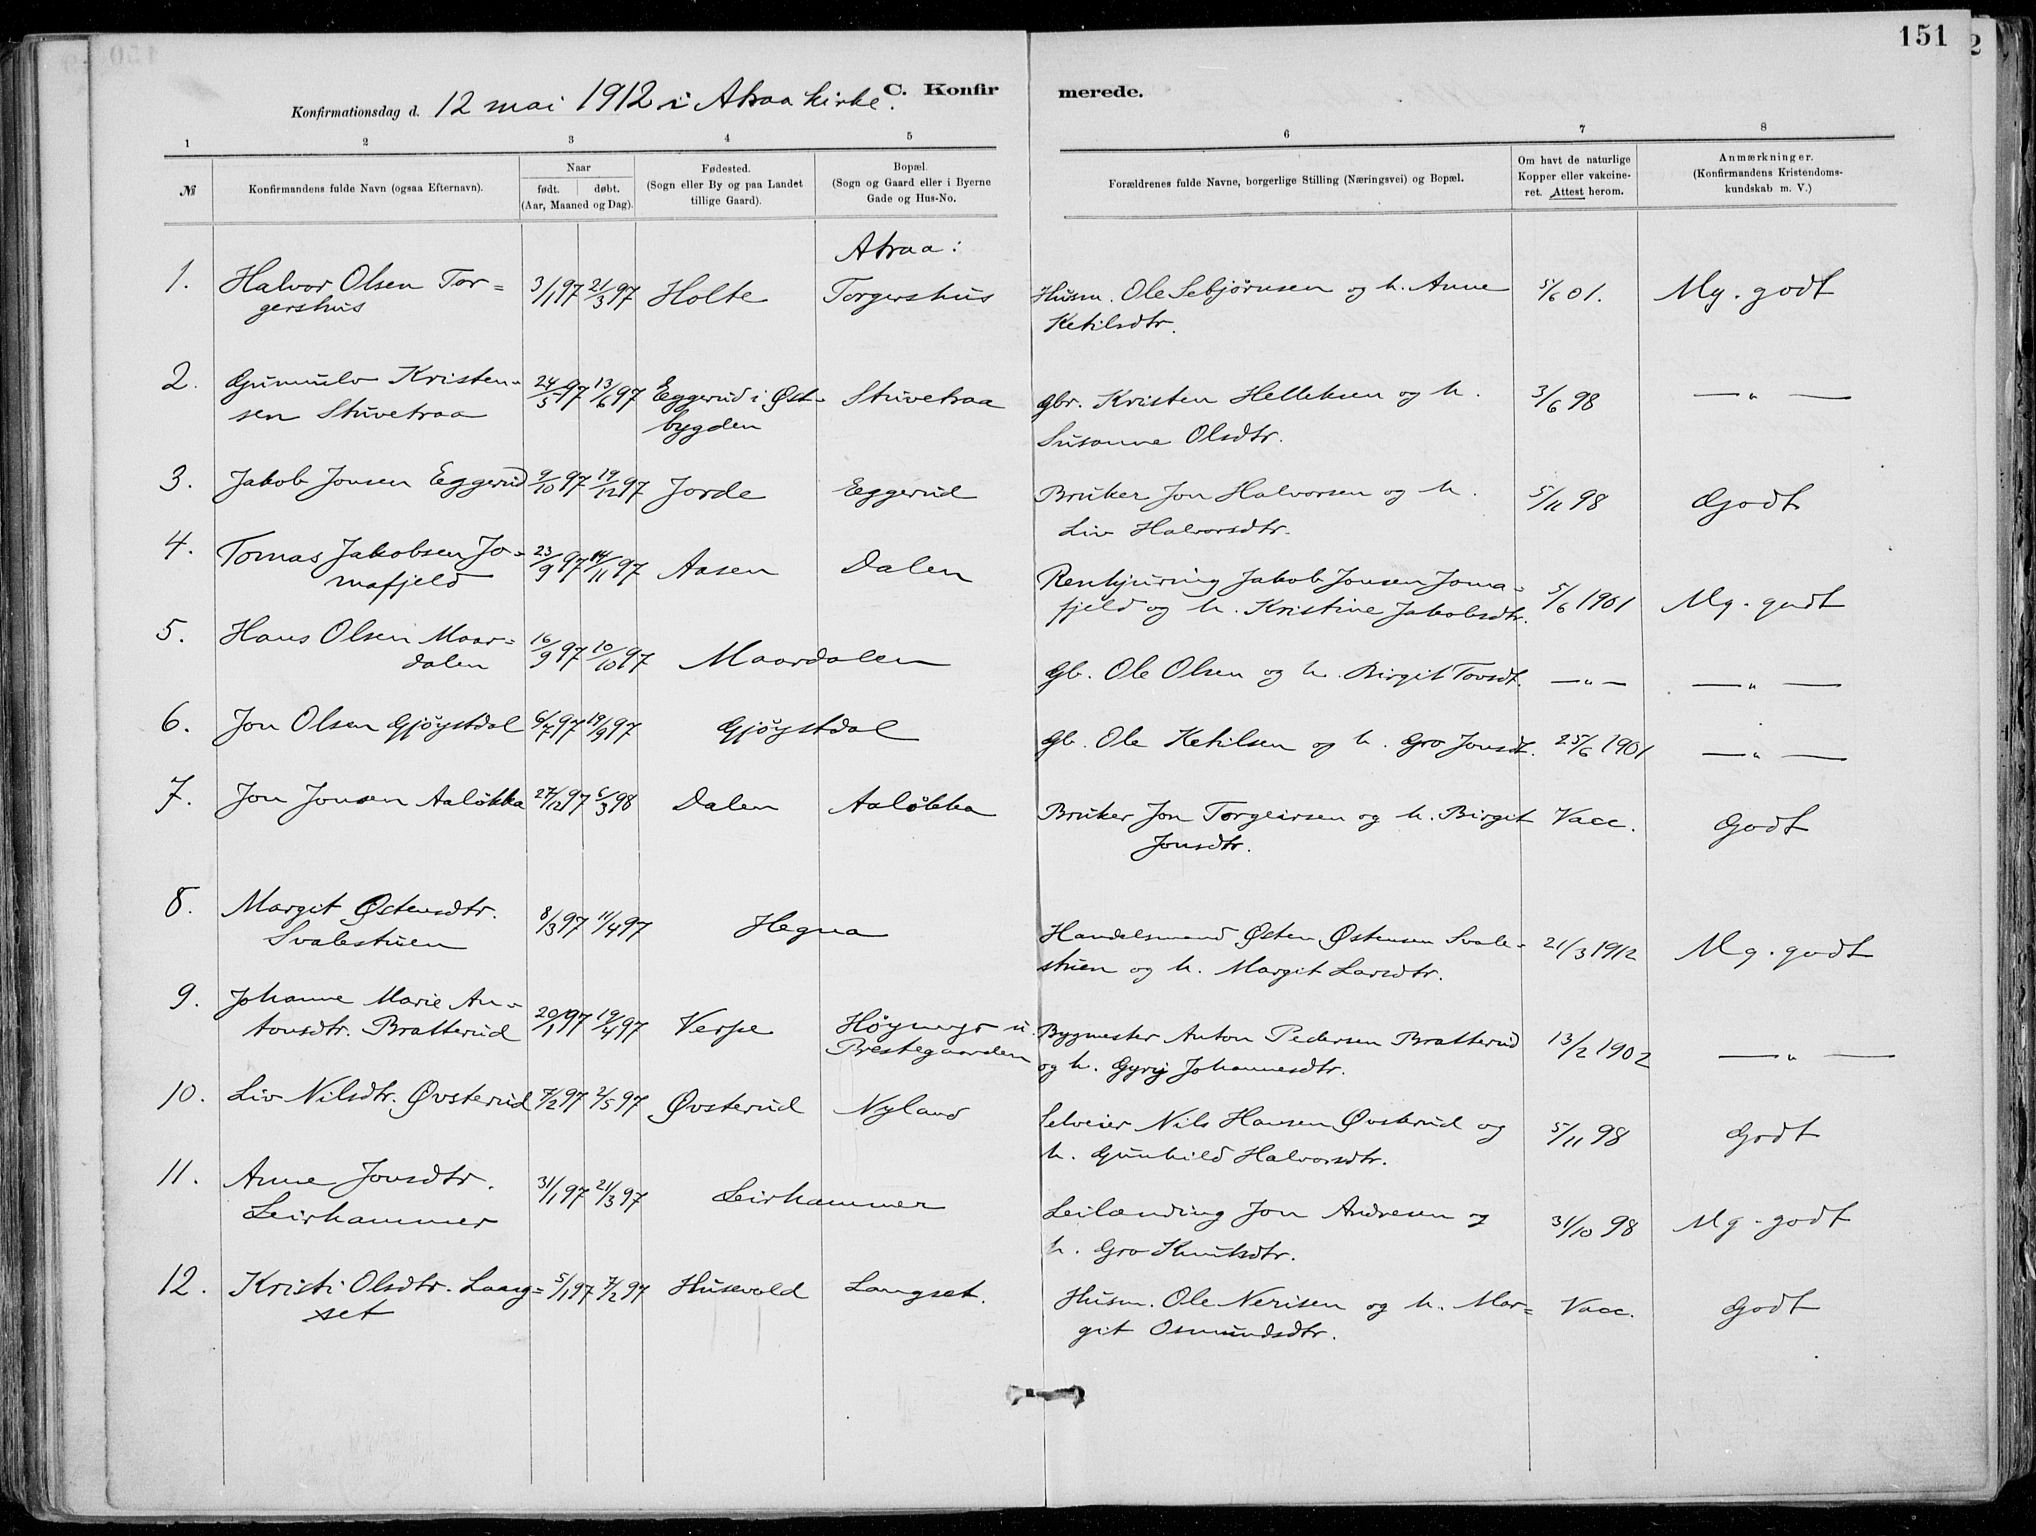 151
C. Konfirmerede.
Konfirmationsdag d. 12 mai 1912 i Atraa kirke.
1 2 3 4 5 6 7 8
№ Konfirmandens fulde Navn (ogsaa Efternavn). Naar født. døbt. (Aar, Maaned og Dag). Fødested. (Sogn eller By og paa Landet tillige Gaard). Bopæl. (Sogn og Gaard eller i Byerne Gade og Hus-No. Forældrenes fulde Navne, borgerlige Stilling (Næringsvei) og Bopæl. Om havt de naturlige Kopper eller vakcineret. Attest herom. Anmærkninger. (Konfirmandens Kristendomskundskab m. V.)
Atraa:
1. Halvor Olsen Tor= 3/1 97 21/3 97 Holte Torgershus Husm. Ole Sebjørnsen og h. Anne 5/6 01. Mg. godt
gershus Ketilsdtr.
2. Gunnulv Kristen- 24/5 97 13/6 97 Eggerud i Øst- Stuvetraa Gbr. Kristen Helleksen og h. 3/6 98 —"—
sen Stuvetraa bygden Susanne Olsdtr.
3. Jakob Jonsen Eggerud 9/10 97 19/12 97 Jorde Eggerud Bruker Jon Halvorsen og h. 5/11 98 Godt
Liv Halvorsdtr.
4. Tomas Jakobsen Jo- 23/9 97 14/11 97 Aasen Dalen Renhjuring Jakob Jonsen Joma- 5/6 1901 Mg. godt
mafjeld fjeld og h. Kristine Jakobsdtr.
5. Hans Olsen Maar= 16/9 97 10/10 97 Maardalen Gb. Ole Olsen og h. Birgit Tovsdt. —"— —"—
dalen
6. Jon Olsen Gjøystdal 6/7 97 19/9 97 Gjøystdal Gb. Ole Ketilsen og h. Gro Jonsdt. 25/6 1901 —"—
7. Jon Jonsen Aaløkka 27/12 97 6/3 98 Dalen Aaløkka Bruker Jon Torgeirsen og h. Birgit Vacc. Godt
Jonsdtr.
8. Margit Østensdtr. 8/3 97 11/4 97 Hegna Handelsmand Østen Østensen Svale- 21/3 1912 Mg. godt
Svalestuen stuen og h. Margit Larsdtr.
9. Johanne Marie An- 20/1 97 19/4 97 Verpe Høymyr u. Bygmester Anton Pedersen Bratterud 13/2 1902 —"—
tonsdtr. Bratterud Prestegaarden og h. Gyri Johannesdtr.
10. Liv Nilsdtr. Øvsterud 7/2 97 2/5 97 Øvsterud Nyland Selveier Nils Hansen Øvsterud og 5/11 98 Godt
h. Gunhild Halvorsdtr.
11. Anne Jonsdtr. 31/1 97 21/3 97 Leirhammer Leilænding Jon Andresen og 31/10 98 Mg. godt
Leirhammer h. Gro Knutsdtr.
12. Kristi Olsdtr. Lang= 5/1 97 7/2 97 Husevold Langset. Husm. Ole Nerisen og h. Mar= Vacc. Godt
set git Osmundsdtr.